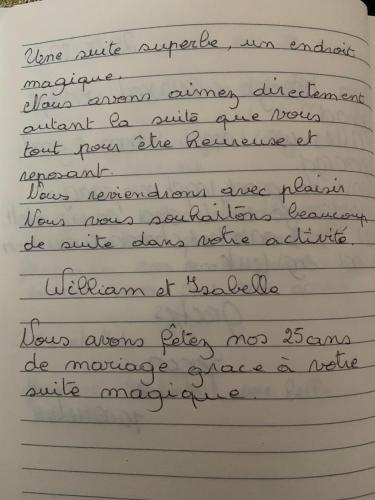 Une suite superbe, un endroit
magique.
Nous avons aimez directement
autant la suite que vous
tout pour être heureuse et
reposant.
Nous reviendrons avec plaisir
Nous vous souhaitons beaucoup
de suite dans votre activité.
William et Isabelle
Nous avons fêtez nos 25 ans
de mariage grace à votre
suite magique.